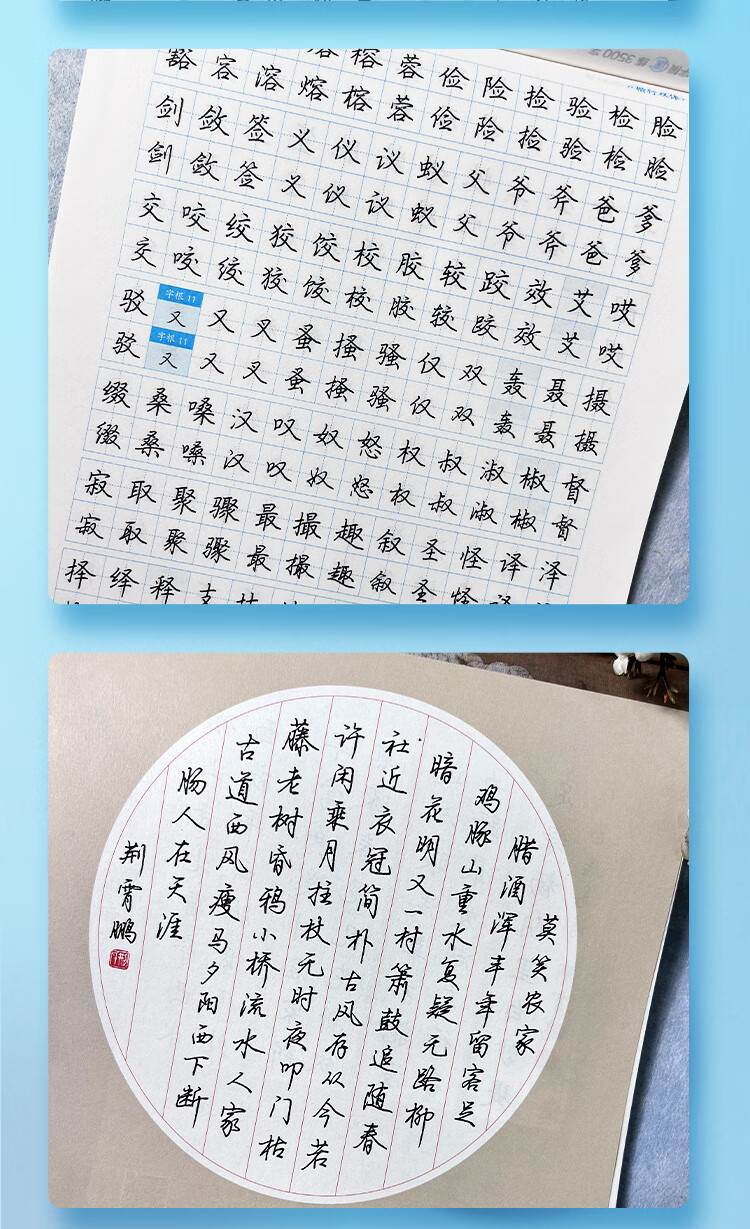 榕 蓉 俭 险 捡 验 检 脸
豁 容 溶 熔 榕 蓉 俭 险 捡 验 检 脸
剑 敛 签 义 仪 议 蚁 父 爷 斧 爸 爹
剑 敛 签 义 仪 议 蚁 父 爷 斧 爸 爹
交 咬 绞 狡 饺 校 胶 较 跤 效 艾 哎
交 咬 绞 狡 饺 校 胶 较 跤 效 艾 哎
驳 字根 11 又 又 叉 蚤 搔 骚 仅 双 轰 聂 摄
驳 字根 11 又 又 叉 蚤 搔 骚 仅 双 轰 聂 摄
缀 桑 嗓 汉 叹 奴 怒 权 叔 淑 椒 督
缀 桑 嗓 汉 叹 奴 怒 权 叔 淑 椒 督
寂 取 聚 骤 最 撮 趣 叙 圣 怪 译 泽
寂 取 聚 骤 最 撮 趣 叙 圣 怪
择 绎 释 支
莫笑农家
腊酒浑丰年留客足
鸡豚山重水复疑无路柳
暗花明又一村箫鼓追随春
社近衣冠简朴古风存从今若
许闲乘月拄杖无时夜叩门枯
藤老树昏鸦小桥流水人家
古道西风瘦马夕阳西下断
肠人在天涯
荆霄鹏